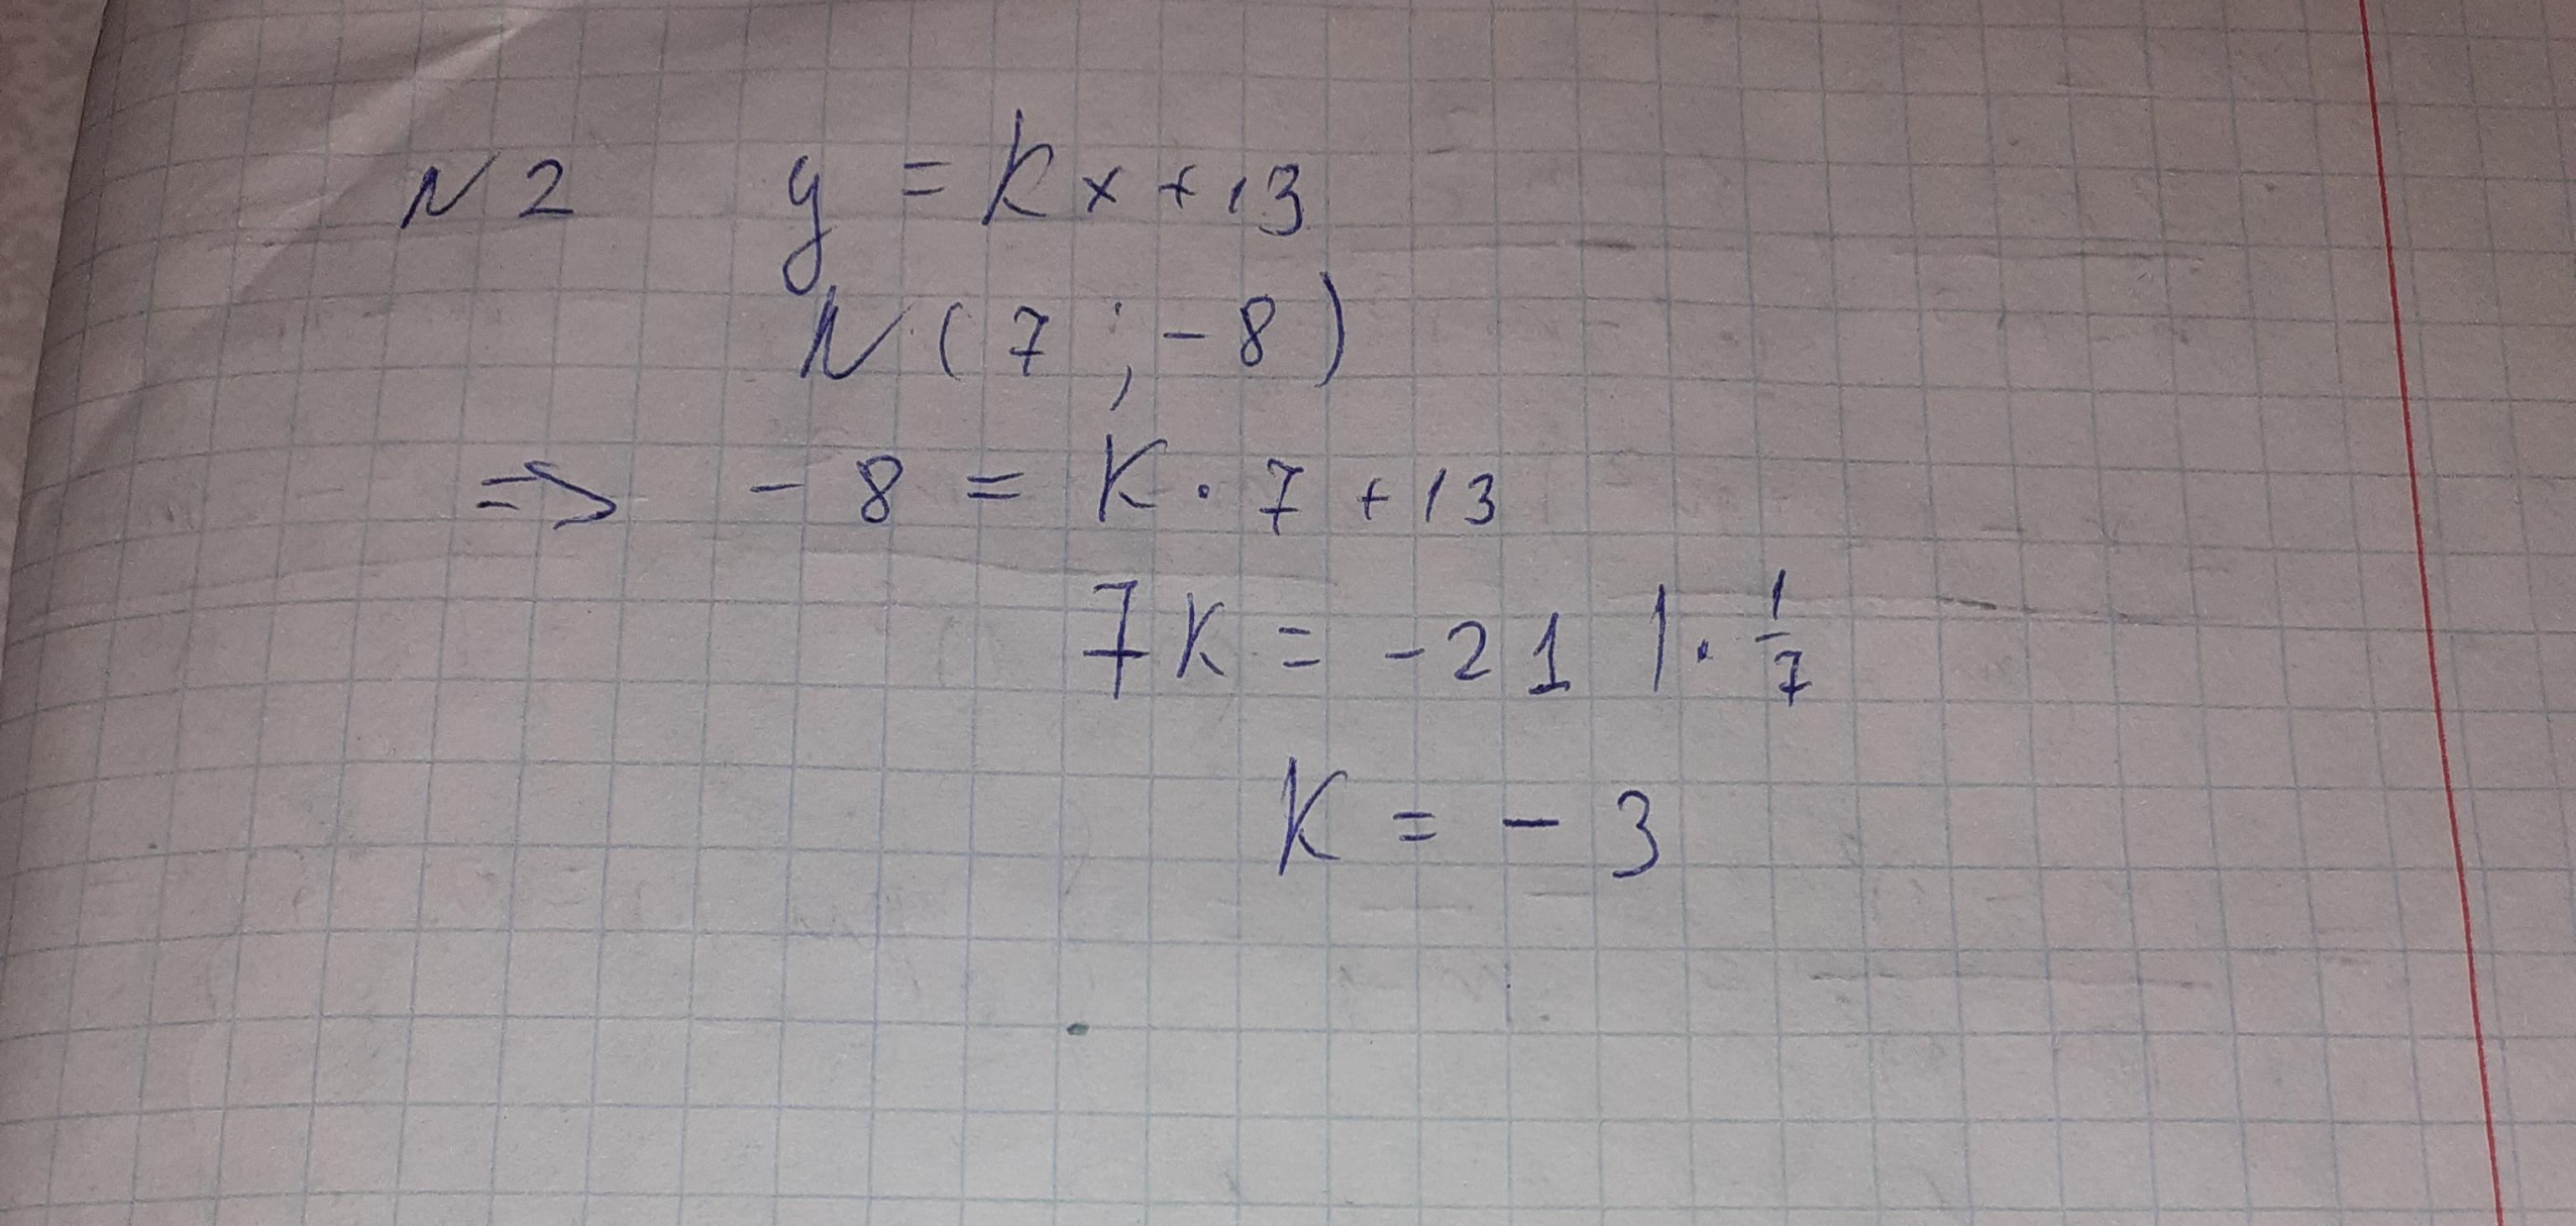 N 2 y = kx + 13
N (7 ; -8)
=> -8 = K · 7 + 13
7K = -21 | · 1/7
K = -3